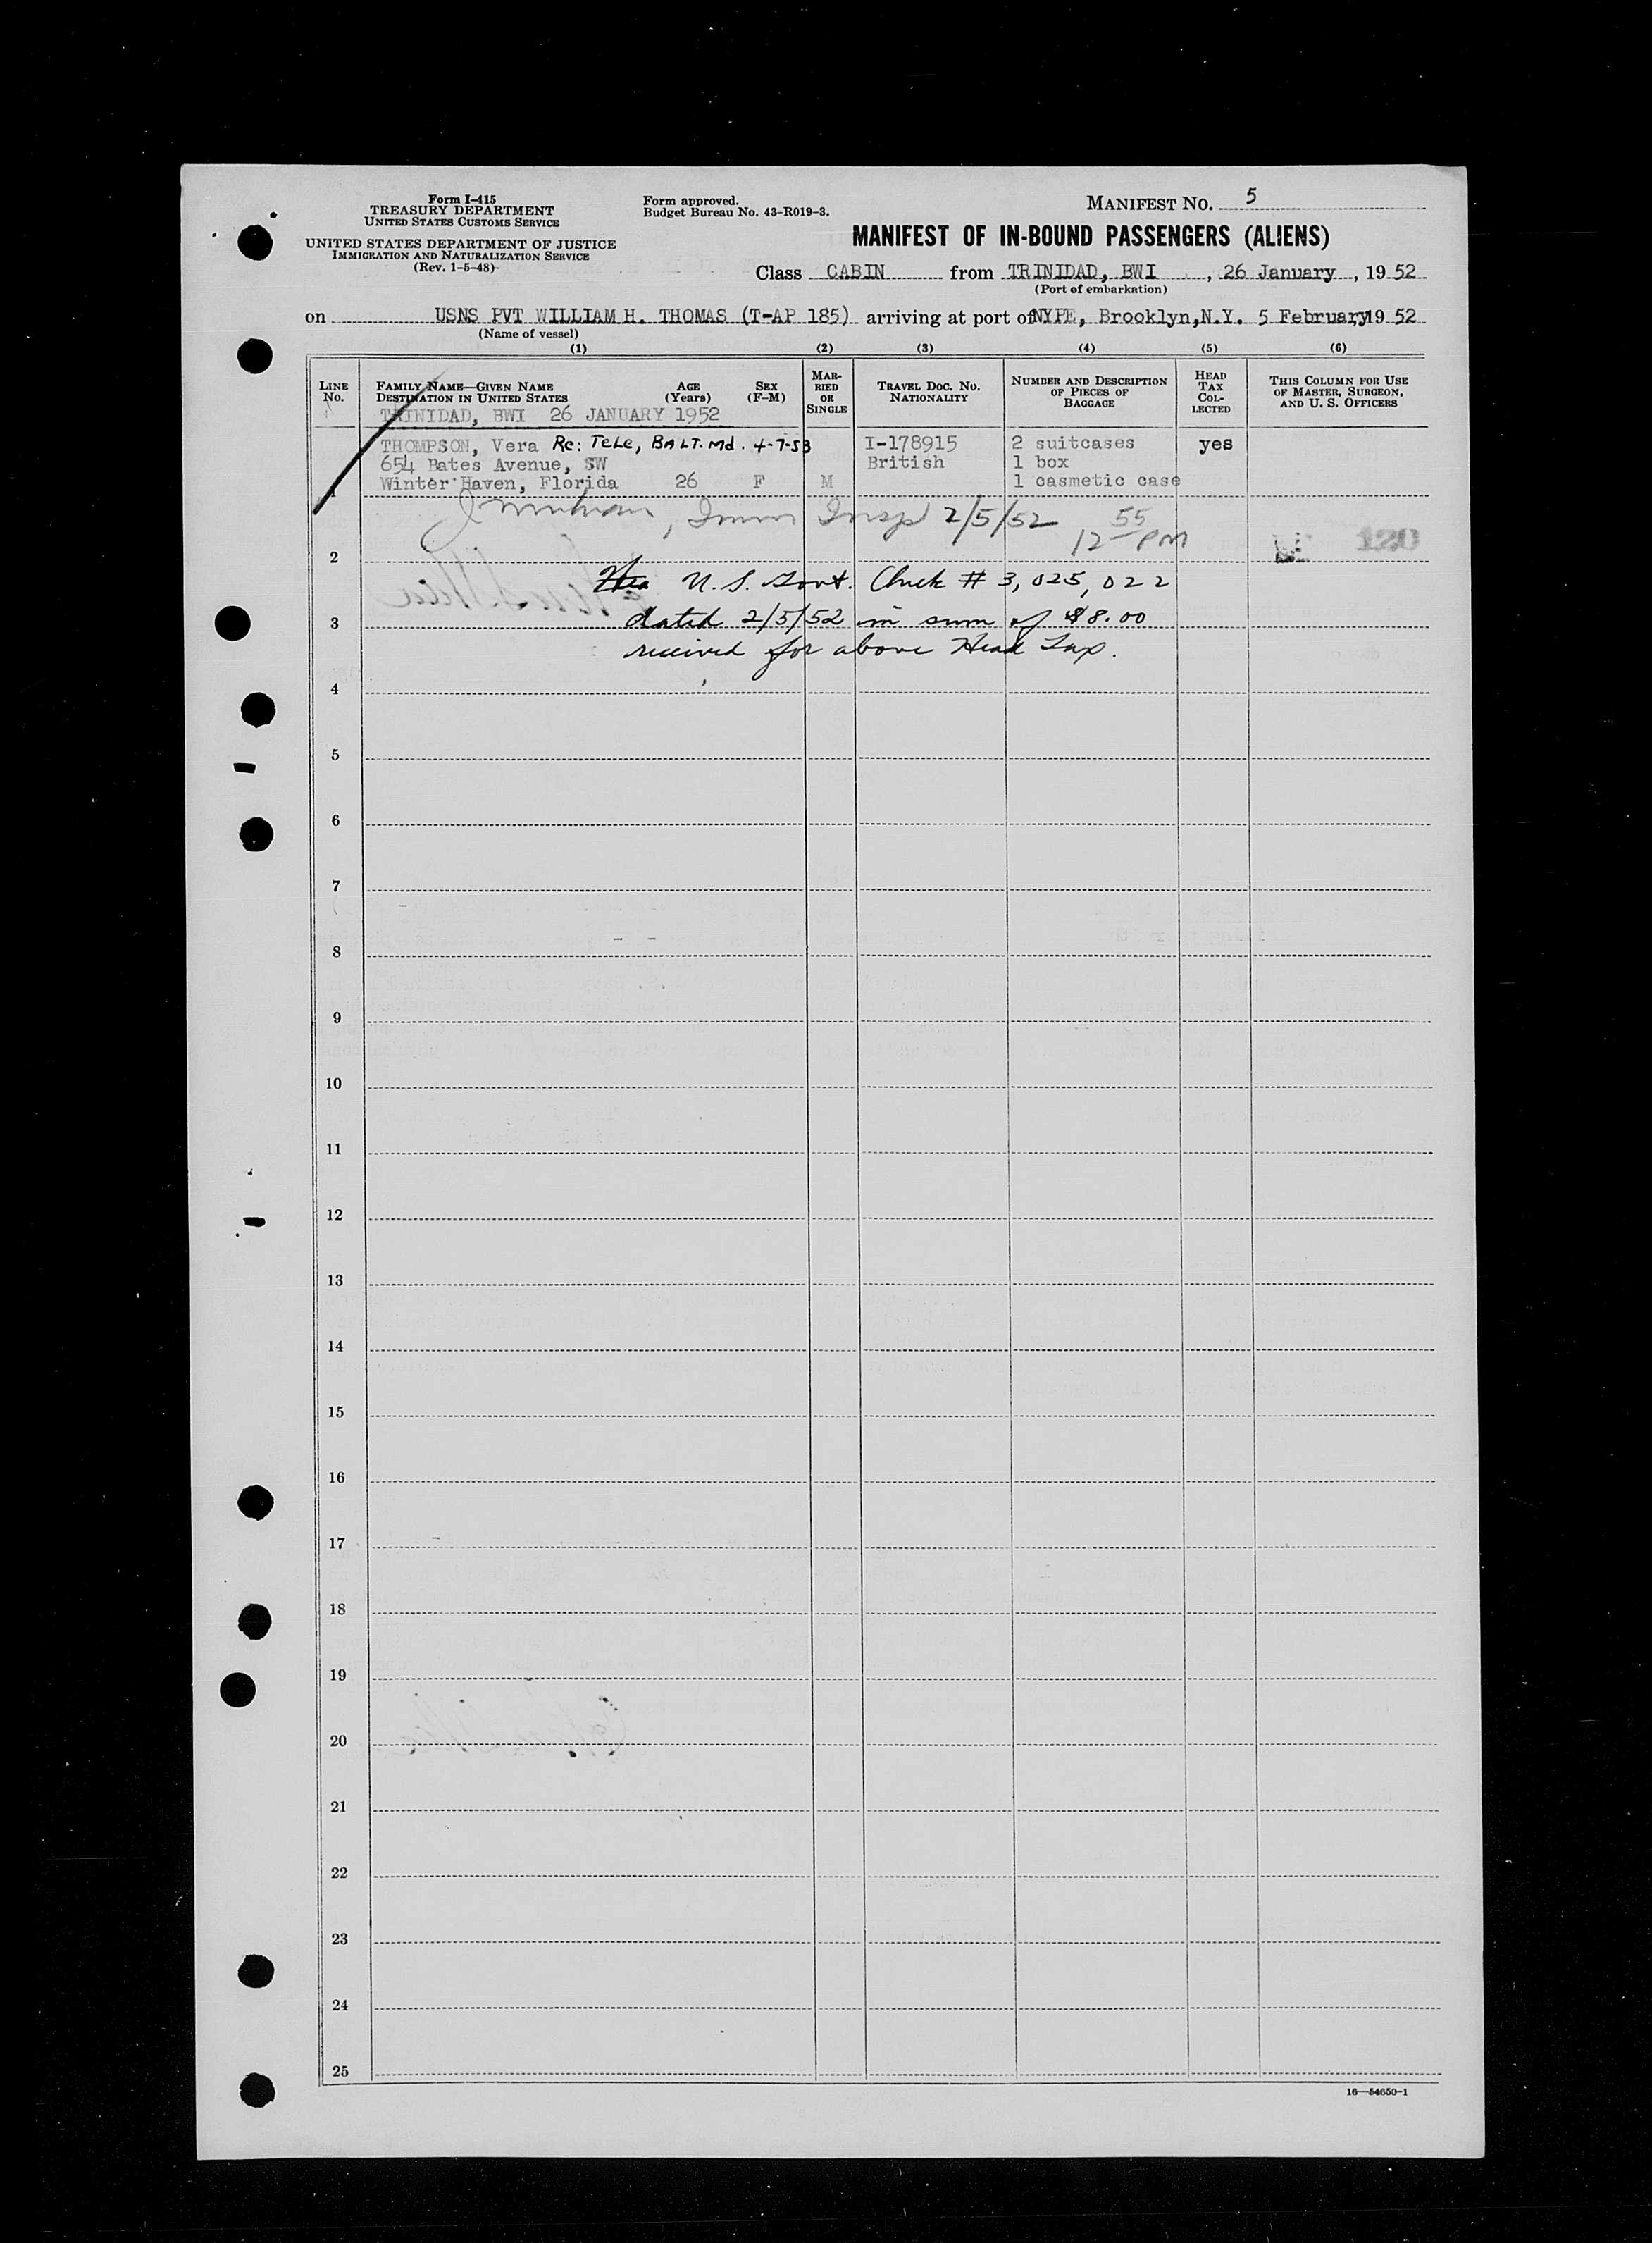 Form I-415
TREASURY DEPARTMENT
UNITED STATES CUSTOMS SERVICE
UNITED STATES DEPARTMENT OF JUSTICE
IMMIGRATION AND NATURALIZATION SERVICE
(Rev. 1-5-48)
Form approved.
Budget Bureau No. 43-R019-3.
MANIFEST NO. 5
MANIFEST OF IN-BOUND PASSENGERS (ALIENS)
Class CABIN from TRINIDAD, BWI, 26 January, 19 52
(Port of embarkation)
on USNS PVT WILLIAM H. THOMAS (T-AP 185) arriving at port of NYPE, Brooklyn, N.Y. 5 February, 19 52
(Name of vessel)
(1) (2) (3) (4) (5) (6)
LINE NO.
FAMILY NAME—GIVEN NAME
DESTINATION IN UNITED STATES
AGE (Years)
SEX (F-M)
MARRIED OR SINGLE
TRAVEL DOC. NO.
NATIONALITY
NUMBER AND DESCRIPTION
OF PIECES OF
BAGGAGE
HEAD TAX COLLECTED
THIS COLUMN FOR USE
OF MASTER, SURGEON,
AND U. S. OFFICERS
TRINIDAD, BWI 26 JANUARY 1952
THOMPSON, Vera Re: Tele, BALT. Md. 4-7-53 I-178915 2 suitcases yes
654 Bates Avenue, SW British 1 box
1 Winter Haven, Florida 26 F M 1 casmetic case
, Imm Insp 2/5/52 12 55 PM
2
U.S. Govt. Check # 3,025,022
3 dated 2/5/52 in sum of $8.00
received for above Head Tax.
4
5
6
7
8
9
10
11
12
13
14
15
16
17
18
19
20
21
22
23
24
25
16—54650-1